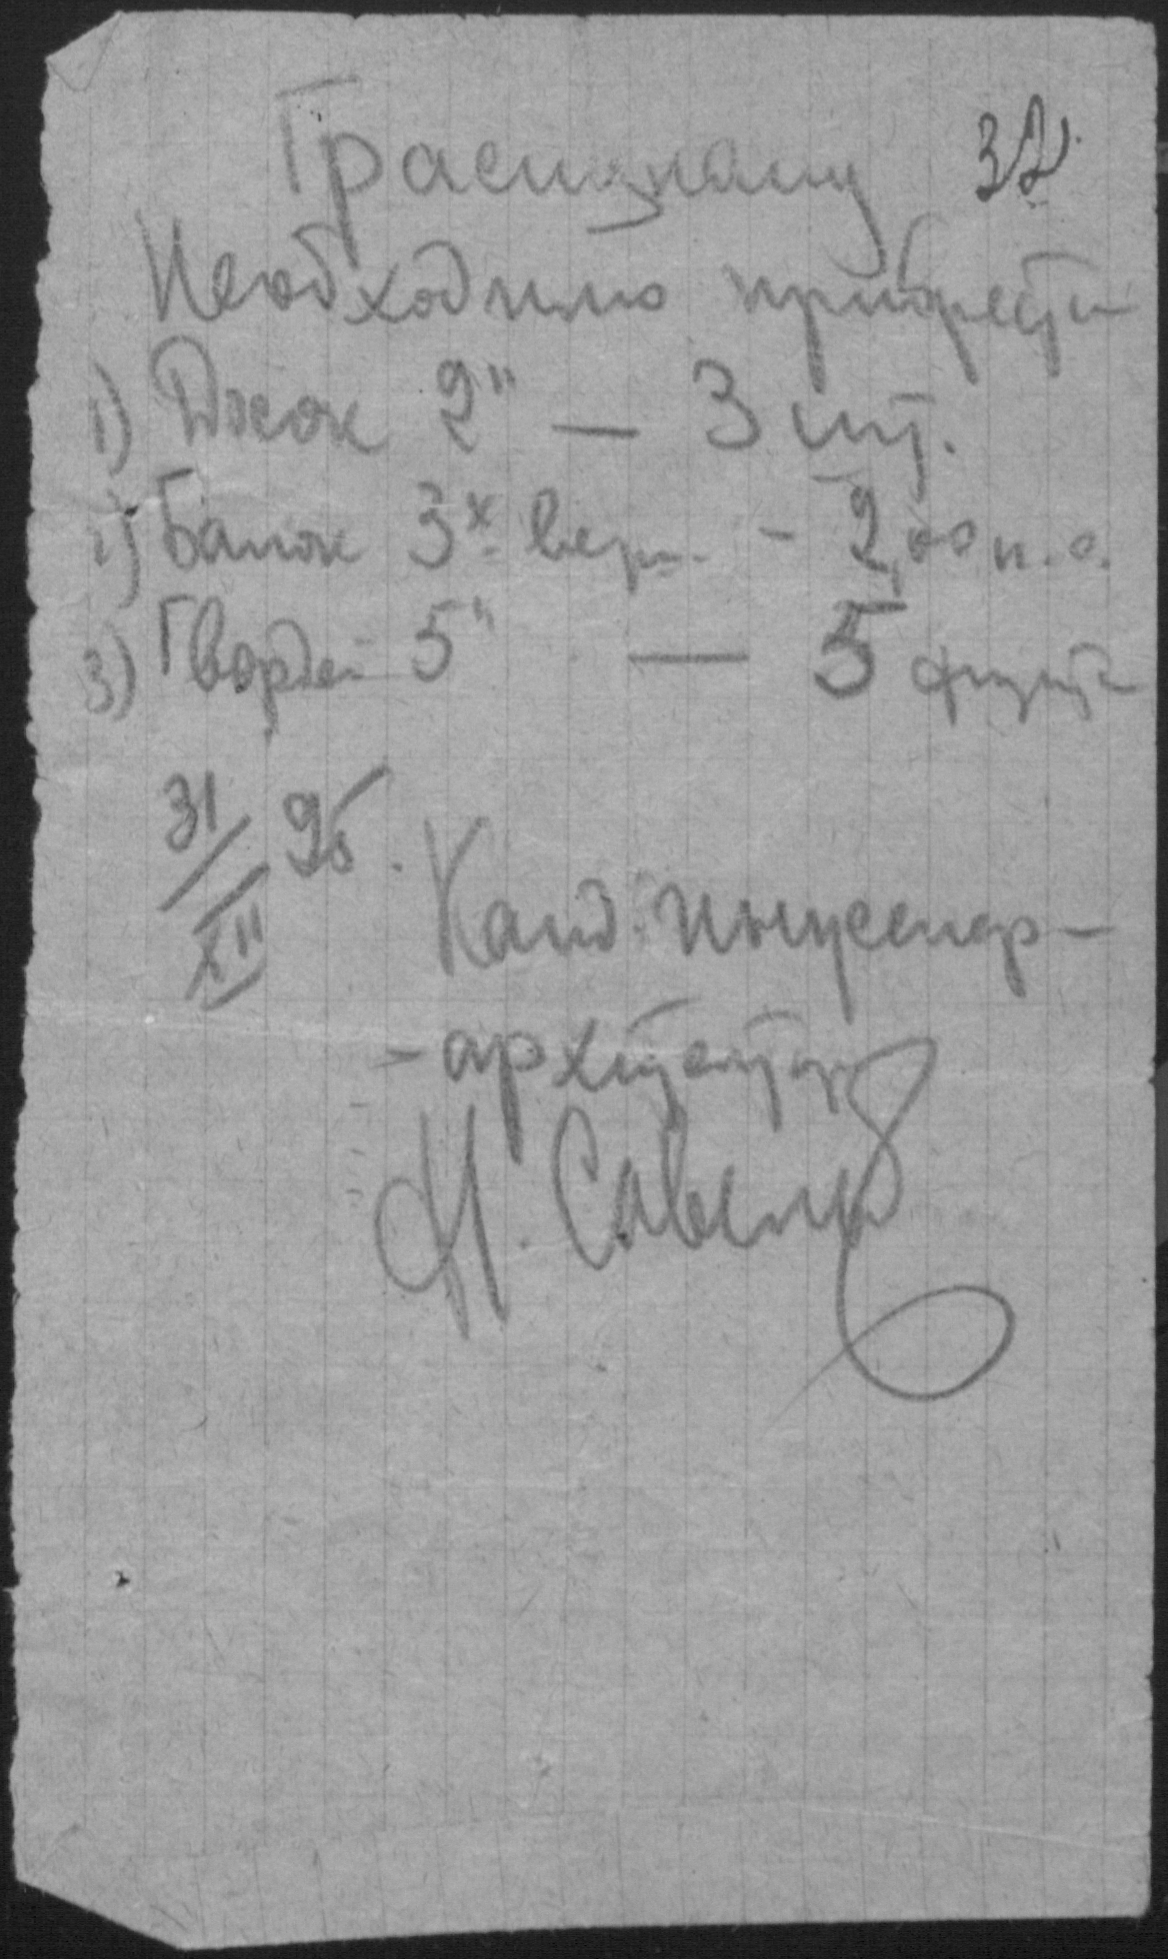 32
Необходимо приобрести
1) Досок 2" — 3 шт.
2) Балок 3х верш. — 2,00 п. с.
3) Гвоздей 5" — 5 фунт
31/XII 25.
Канд. инженер-
-архитектор
Н. Савель